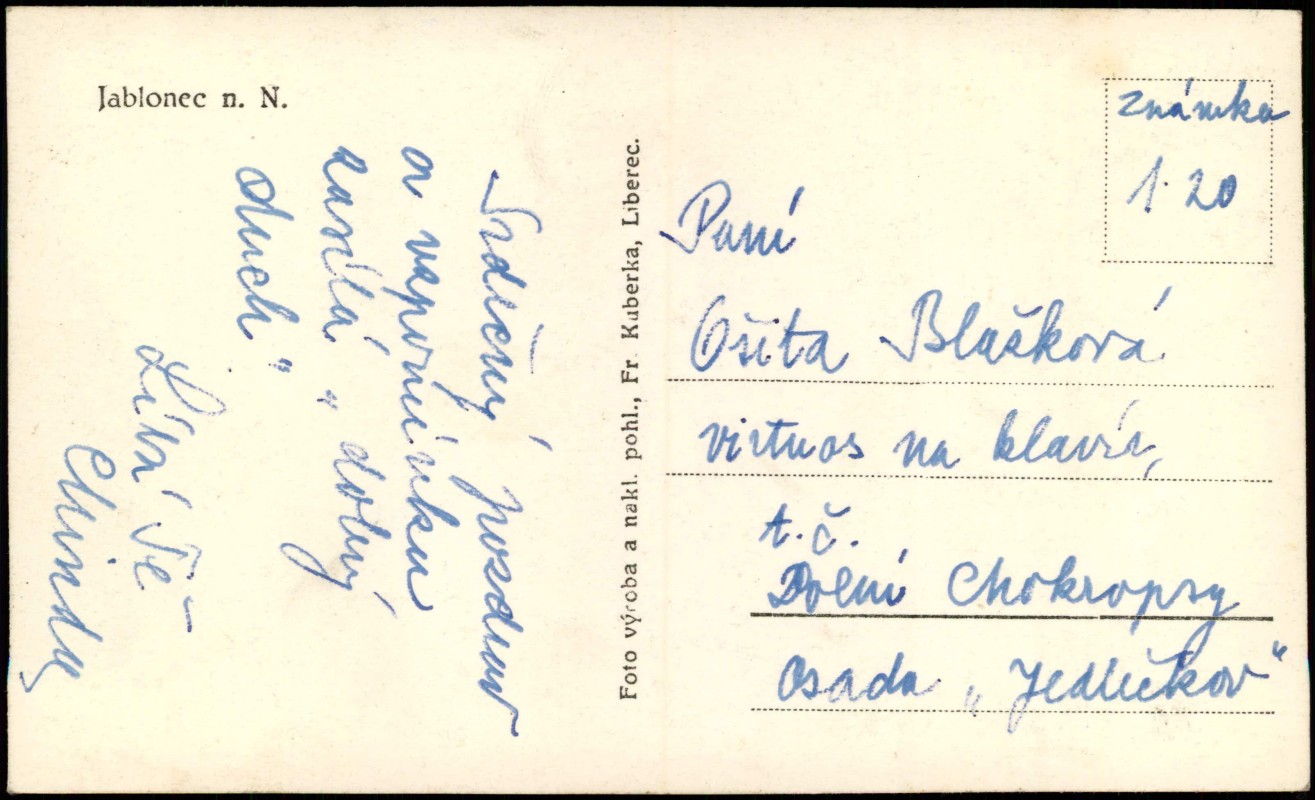 Jablonec n. N.
Srdečný pozdrav
a vzpomínku
zasílá „dobrý
duch"
Líbá Tě
Chindy
Foto výroba a nakl. pohl., Fr. Kuberka, Liberec.
známka
1·20
Paní
Ošita Blašková
virtuos na klavír,
t.č.
Dolní Chokropsy
osada „Jedličkov"